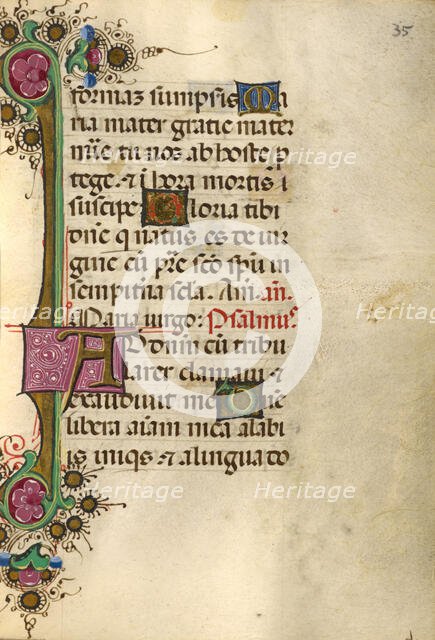 35
formaz sumpsis Ma
ria mater gratie mater
mie tu nos ab hoste p
tege & i hora mortis i
suscipe Gloria tibi
dne q natus es de uir
gine cu pre sco spu in
sempitna scla. Am an.
Maria uirgo: Psalmus
AD Dominu cu tribu
larer clamaui &
exaudiuit me Dne
libera aiam mea a labi
is iniqs & a lingua do
Heritage
Heritage
Heritage
Heritage
Heritage
Heritage